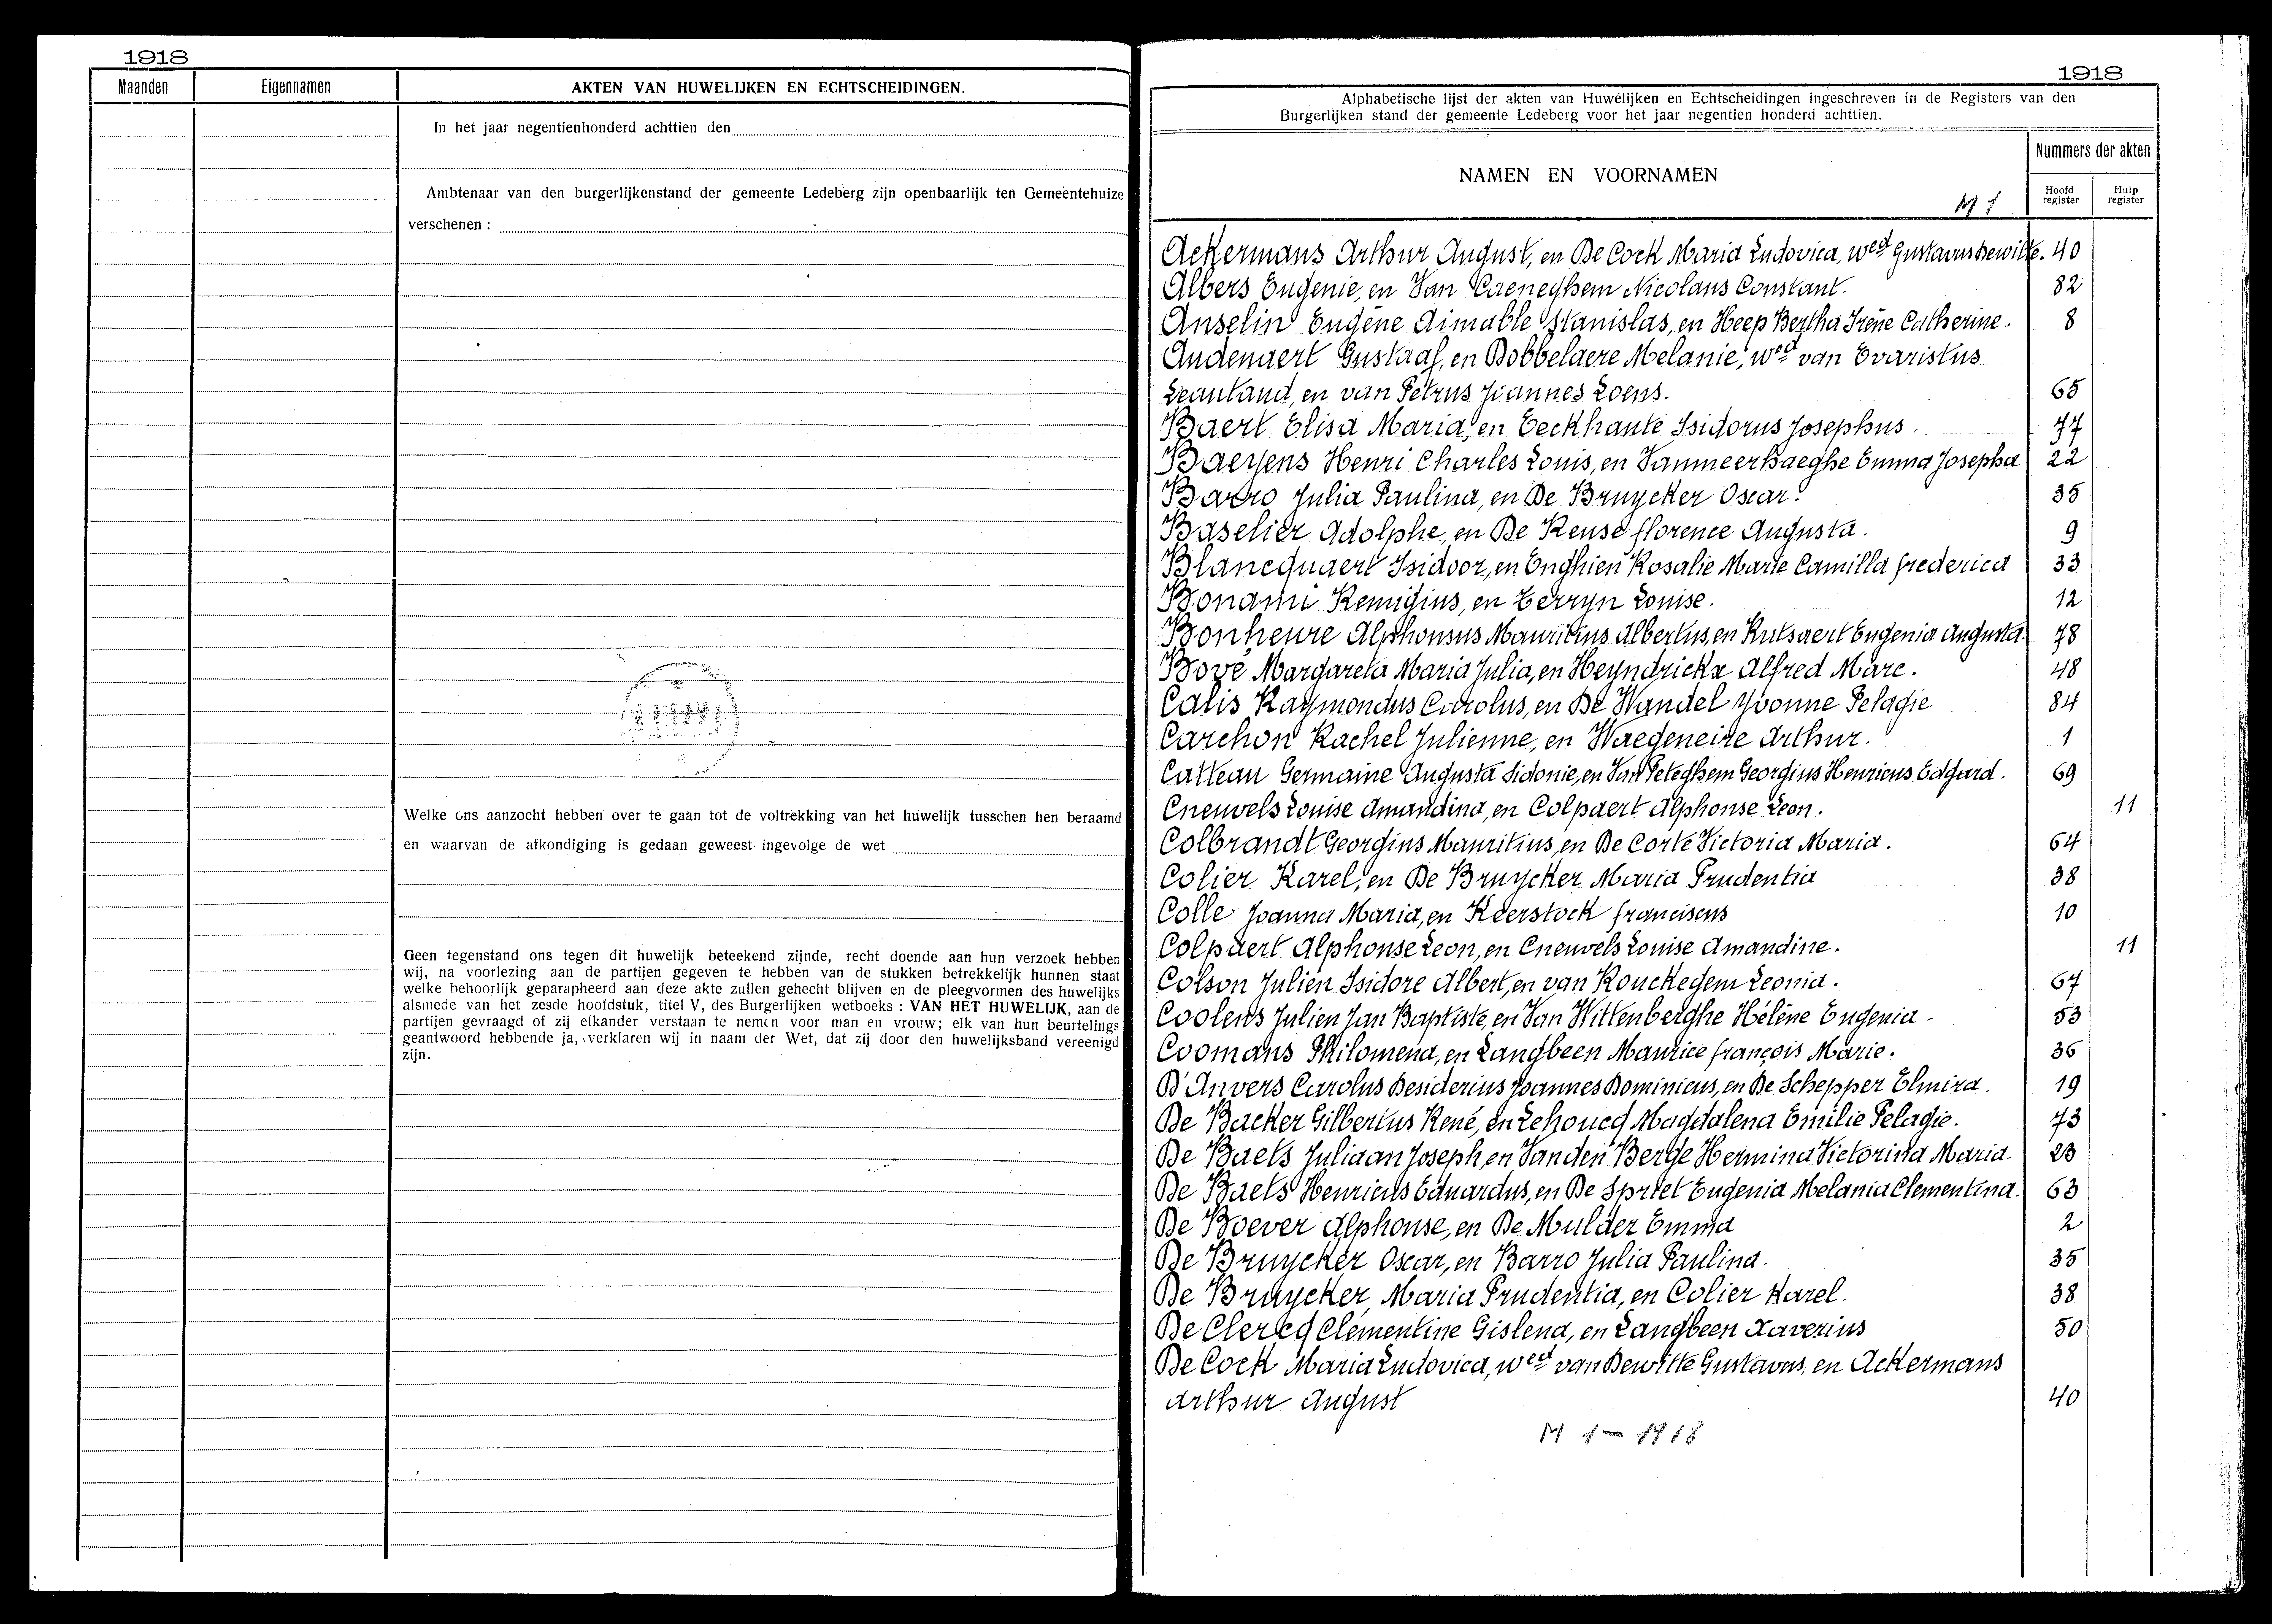 1918
Maanden Eigennamen AKTEN VAN HUWELIJKEN EN ECHTSCHEIDINGEN.
In het jaar negentienhonderd achttien den
Ambtenaar van den burgerlijkenstand der gemeente Ledeberg zijn openbaarlijk ten Gemeentehuize
verschenen :
Welke ons aanzocht hebben over te gaan tot de voltrekking van het huwelijk tusschen hen beraamd
en waarvan de afkondiging is gedaan geweest ingevolge de wet
Geen tegenstand ons tegen dit huwelijk beteekend zijnde, recht doende aan hun verzoek hebben
wij, na voorlezing aan de partijen gegeven te hebben van de stukken betrekkelijk hunnen staat
welke behoorlijk geparapheerd aan deze akte zullen gehecht blijven en de pleegvormen des huwelijks
alsmede van het zesde hoofdstuk, titel V, des Burgerlijken wetboeks : VAN HET HUWELIJK, aan de
partijen gevraagd of zij elkander verstaan te nemen voor man en vrouw; elk van hun beurtelings
geantwoord hebbende ja, verklaren wij in naam der Wet, dat zij door den huwelijksband vereenigd
zijn.
1918
Alphabetische lijst der akten van Huwelijken en Echtscheidingen ingeschreven in de Registers van den
Burgerlijken stand der gemeente Ledeberg voor het jaar negentien honderd achttien.
NAMEN EN VOORNAMEN
Nummers der akten
M 1
Hoofd register
Hulp register
Ackermans Arthur August, en De Cock Maria Ludovica, wed Gustavus Dewitte. 40
Albers Eugenie, en Van Caeneghem Nicolaus Constant. 82
Anselin Eugène Aimable Stanislas, en Heep Bertha Irène Catherine. 8
Audenaert Gustaaf, en Dobbelaere Melanie, wed van Evaristus
Leautaud, en van Petrus Joannes Loens. 65
Baert Elisa Maria, en Eeckhaute Isidorus Josephus. 77
Baeyens Henri Charles Louis, en Vanmeerhaeghe Emma Josepha 22
Barro Julia Paulina, en De Bruycker Oscar. 35
Baselier Adolphe, en De Keuse florence Augusta. 9
Blancquaert Isidoor, en Enghien Rosalie Marie Camilla frederica 33
Bonami Remigius, en Terryn Louise. 12
Bonheure Alphonsus Mauritius Albertus, en Rutsaert Eugenia Augusta. 78
Bové Margareta Maria Julia, en Heyndrickx Alfred Marc. 48
Calis Raymondus Carolus, en De Wandel Yvonne Pelagie 84
Carchon Rachel Julienne, en Waegeneire Arthur. 1
Catteau Germaine Augusta Sidonie, en Van Peteghem Georgius Henricus Edgard. 69
Cneuvels Louise Amandina, en Colpaert Alphonse Leon. 11
Colbrandt Georgius Mauritius, en De Corte Victoria Maria. 64
Colier Karel, en De Bruycker Maria Prudentia 38
Colle Joanna Maria, en Keerstock franciscus 10
Colpaert Alphonse Leon, en Cneuvels Louise Amandine. 11
Colson Julien Isidore Albert, en van Rouckegem Leonia. 67
Coolens Julien Jan Baptiste, en Van Wittenberghe Hélène Eugenia. 53
Coomans Philomena, en Langbeen Maurice françois Marie. 36
D'Anvers Carolus Desiderius Joannes Dominicus, en De Schepper Elmira. 19
De Backer Gilbertus René, en Lehoucq Magdalena Emilie Pelagie. 73
De Baets Juliaan Joseph, en Vanden Berge Hermina Victorina Maria. 23
De Baets Henricus Eduardus, en De Spriet Eugenia Melania Clementina. 63
De Boever Alphonse, en De Mulder Emma 2
De Bruycker Oscar, en Barro Julia Paulina. 35
De Bruycker Maria Prudentia, en Colier Karel. 38
De Clercq Clementine Gislena, en Langbeen Xaverius 50
De Cock Maria Ludovica, wed van Dewitte Gustavus, en Ackermans
Arthur August 40
M 1 - 1918